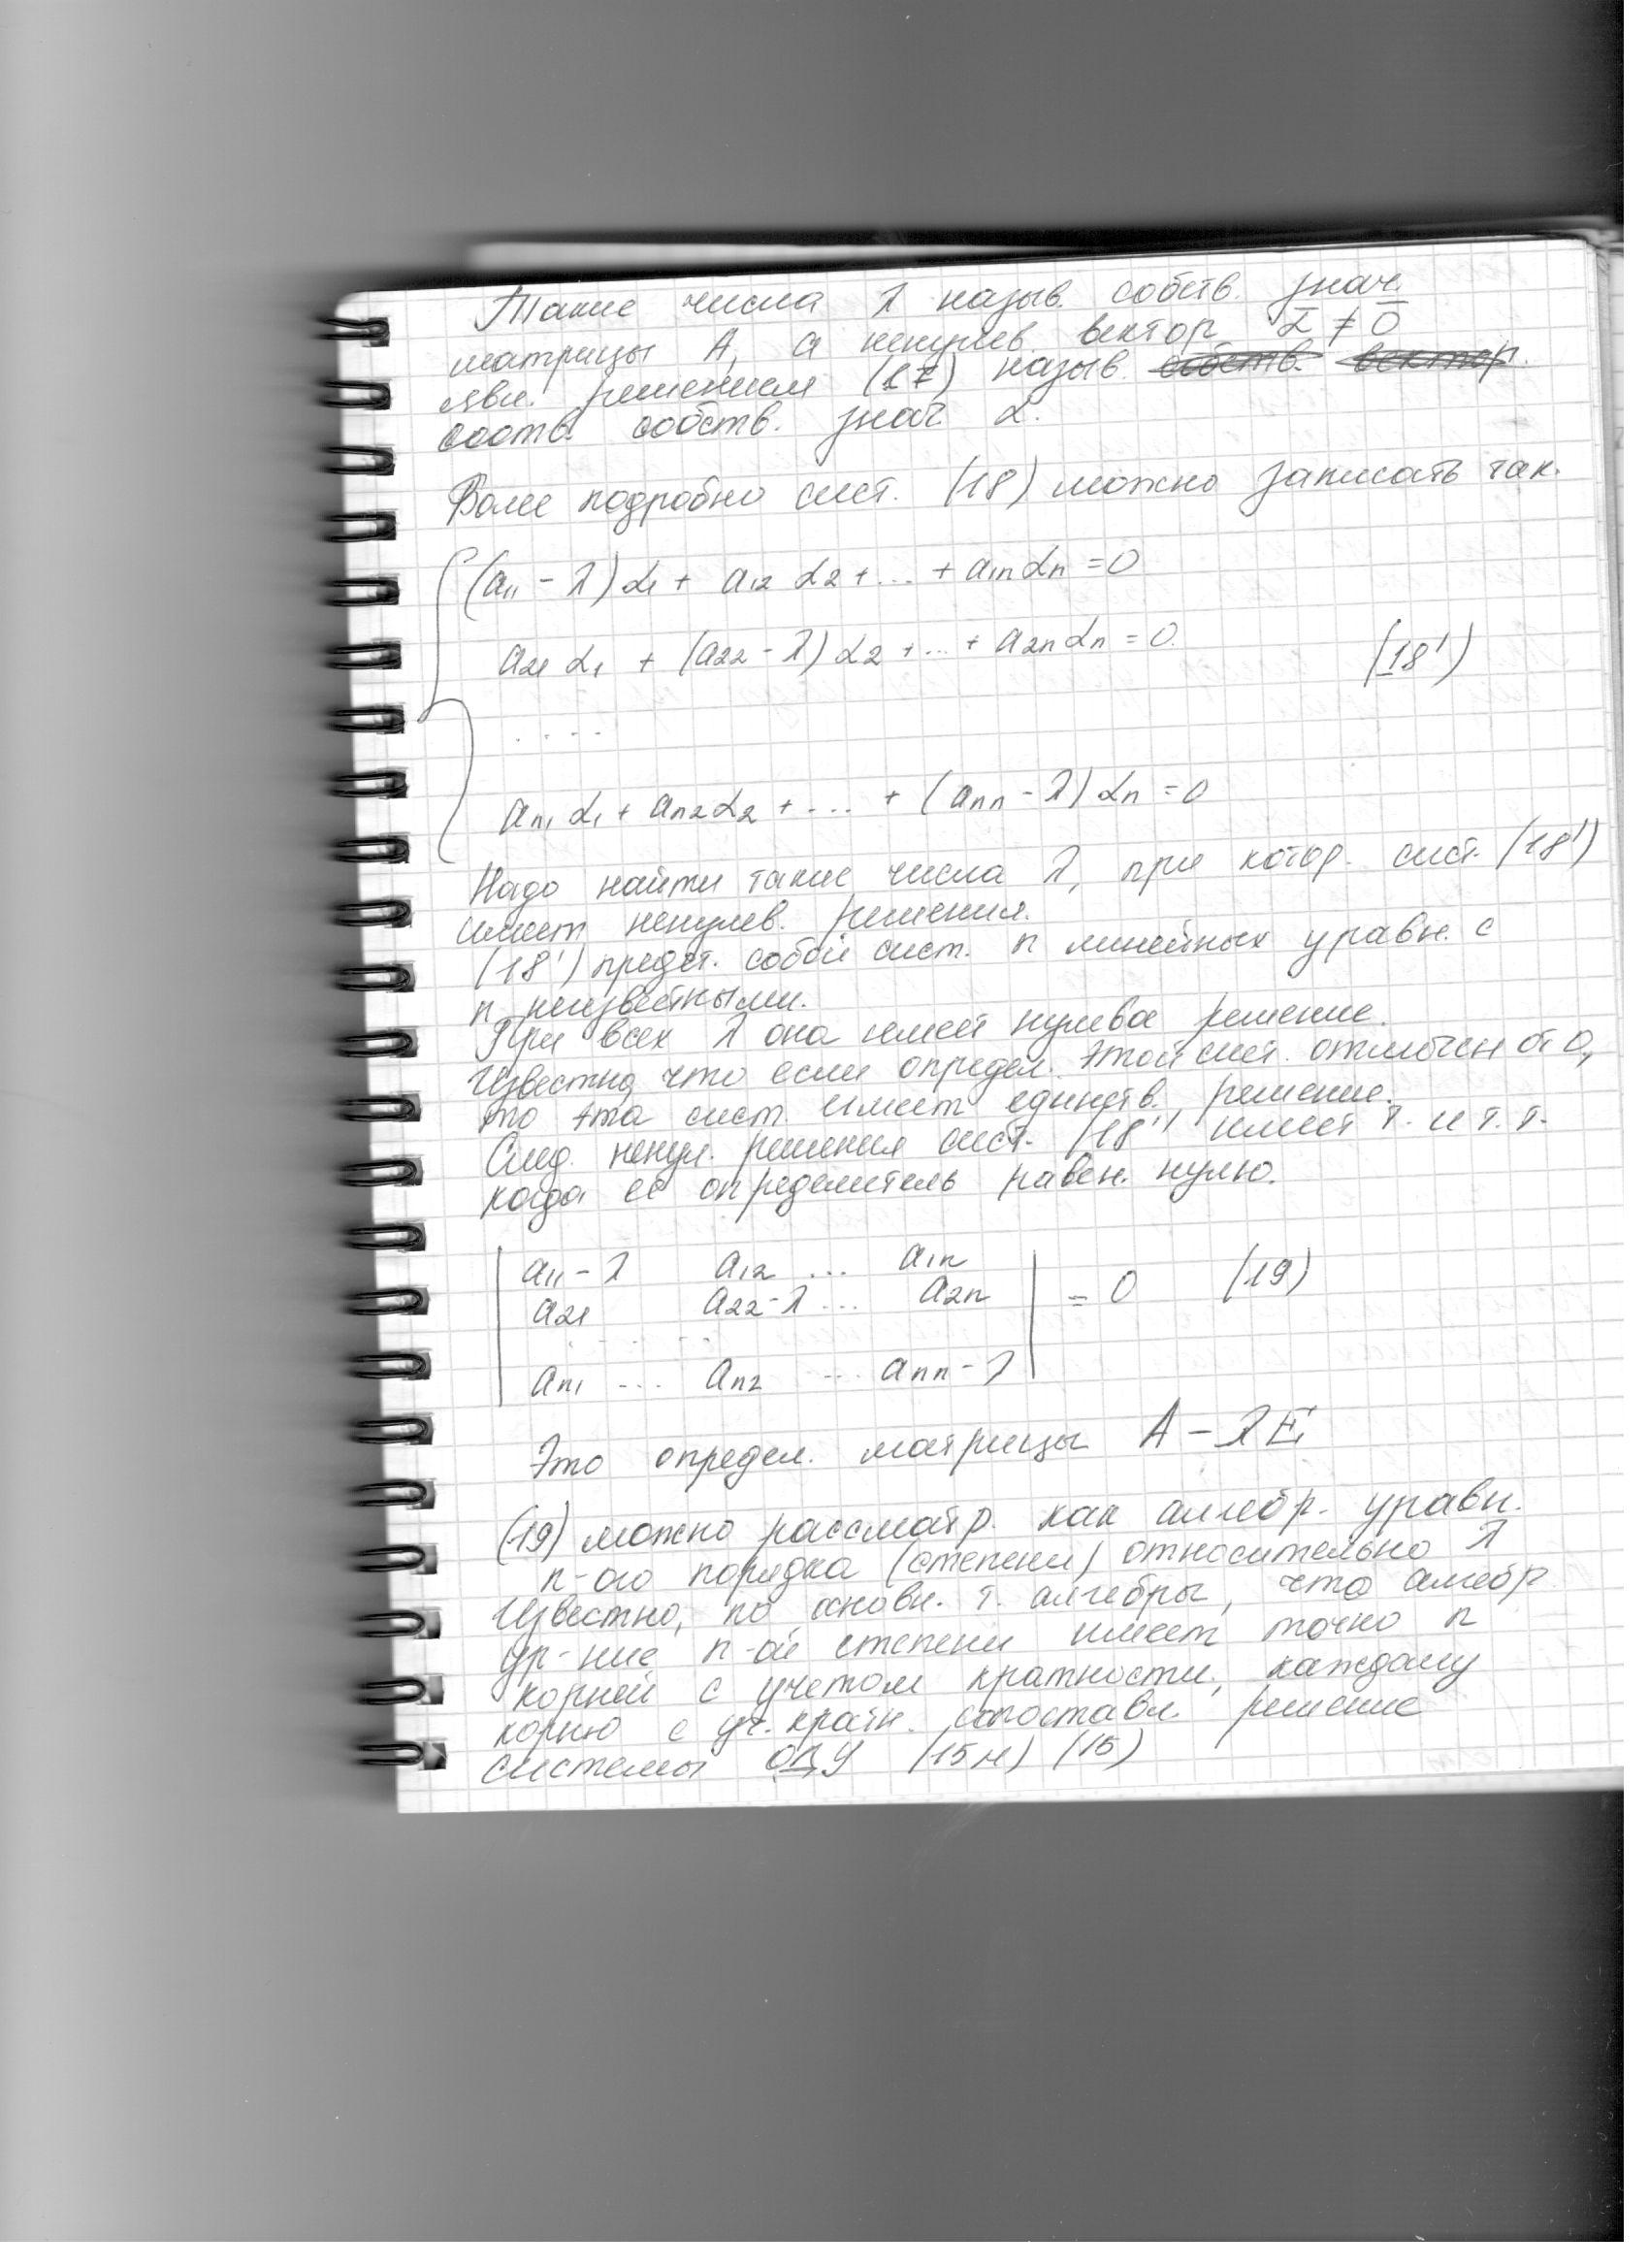 Такие числа λ назыв. собств. знач.
матрицы А, а ненулев. вектор ᾱ ≠ 0̄
явл. решением (17) назыв. собств. вектор.
соотв. собств. знач. α.
Более подробно сист. (18) можно записать так.
(a₁₁ - λ) α₁ + a₁₂ α₂ + ... + a₁ₙ αₙ = 0
a₂₁ α₁ + (a₂₂ - λ) α₂ + ... + a₂ₙ αₙ = 0. (18')
. . . .
aₙ₁ α₁ + aₙ₂ α₂ + ... + (aₙₙ - λ) αₙ = 0
Надо найти такие числа λ, при котор. сист. (18')
имеет ненулев. решения.
(18') предст. собой сист. n линейных уравн. с
n неизвестными.
При всех λ она имеет нулевое решение.
Известно, что если определ. этой сист. отличен от 0,
то эта сист. имеет единств. решение.
След. ненул. решения сист. (18') имеет т. и т. т.
когда её определитель равен. нулю.
| a₁₁ - λ a₁₂ ... a₁ₙ |
| a₂₁ a₂₂ - λ ... a₂ₙ | = 0 (19)
. . . . . .
| aₙ₁ ... aₙ₂ ... aₙₙ - λ |
Это определ. матрицы A - λE
(19) можно рассматр. как алгебр. уравн.
n-ого порядка (степени) относительно λ
Известно, по основн. т. алгебры, что алгебр
ур-ние n-ой степени имеет точно n
корней с учетом кратности, каждому
корню с уч. кратн. сопоставл. решение
системы ОДУ (15н) (15)